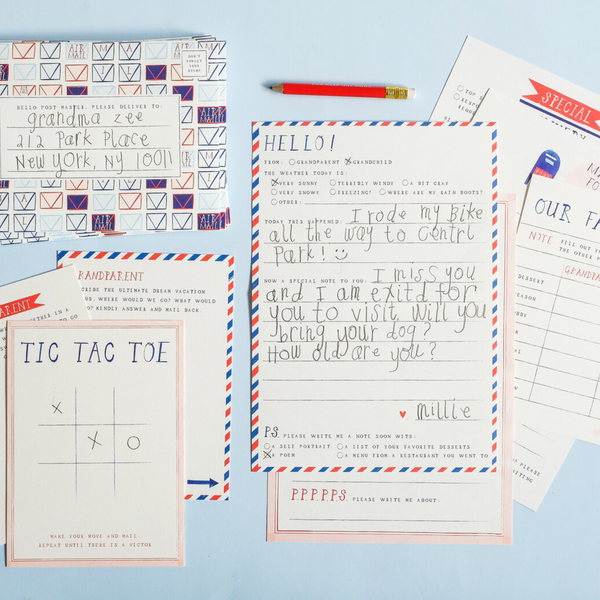 AIR MAIL
DON'T FORGET YOUR STAMP
HELLO POST MASTER, PLEASE DELIVER TO:
grandma zee
212 Park Place
New York, NY 10011
HELLO!
FROM: GRANDPARENT GRANDCHILD
THE WEATHER TODAY IS:
VERY SUNNY TERRIBLY WINDY A BIT GRAY
VERY SNOWY FREEZING! WHERE ARE MY RAIN BOOTS?
OTHER:
TODAY THIS HAPPENED: I rode my bike
all the way to Centrl
Park! ☺
NOW A SPECIAL NOTE TO YOU: I miss you
and I am exitd for
you to visit. Will you
bring your dog?
How old are you?
♥ millie
P.S. PLEASE WRITE ME A NOTE SOON WITH:
A SELF PORTRAIT A LIST OF YOUR FAVORITE DESSERTS
A POEM A MENU FROM A RESTAURANT YOU WENT TO
PPPPPS. PLEASE WRITE ME ABOUT:
GRANDPARENT
THE ULTIMATE DREAM VACATION
WHERE WOULD WE GO? WHAT WOULD
KINDLY ANSWER AND MAIL BACK.
TIC TAC TOE
X
X O
MAKE YOUR MOVE AND MAIL.
REPEAT UNTIL THERE IS A VICTOR
SPECIAL
OUR FA
NOTE FILL OUT
THE OTHER
GRANDPA
DESSERT
SEASON